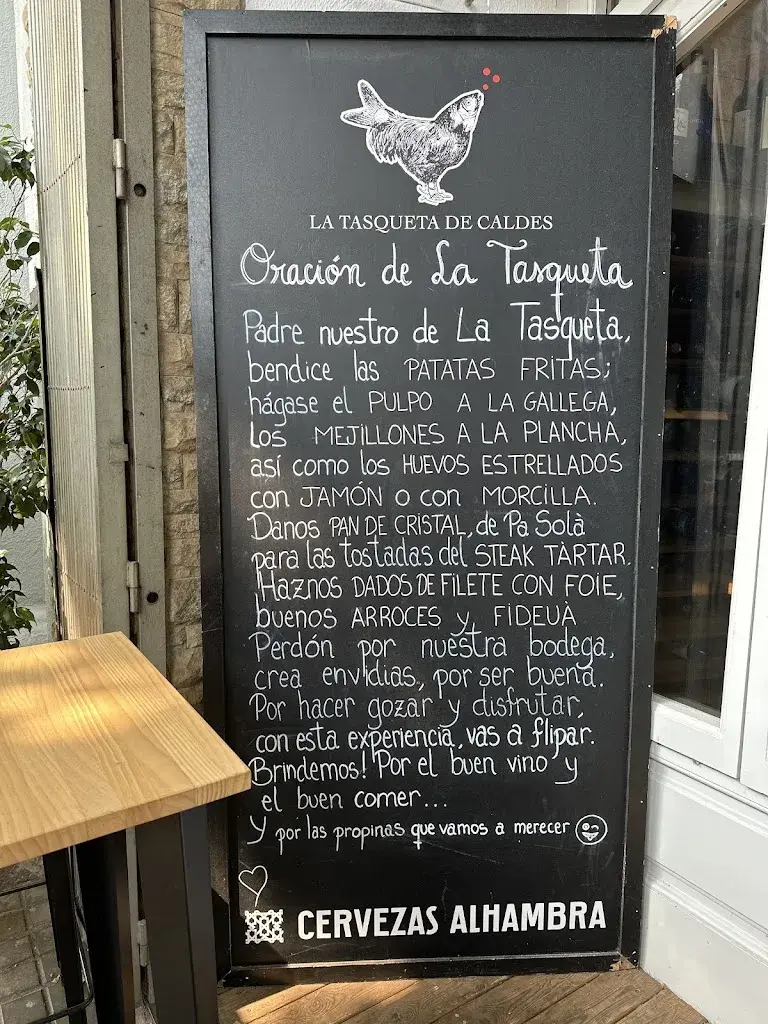 LA TASQUETA DE CALDES
Oración de La Tasqueta
Padre nuestro de La Tasqueta,
bendice las PATATAS FRITAS;
hágase el PULPO A LA GALLEGA,
los MEJILLONES A LA PLANCHA,
así como los HUEVOS ESTRELLADOS
con JAMÓN o con MORCILLA.
Danos PAN DE CRISTAL, de Pa Solà
para las tostadas del STEAK TÀRTAR.
¡Haznos DADOS DE FILETE CON FOIE,
buenos ARROCES y FIDEUÀ
Perdón por nuestra bodega,
crea envidias, por ser buena.
Por hacer gozar y disfrutar,
con esta experiencia, vas a flipar.
Brindemos! Por el buen vino y
el buen comer...
y por las propinas que vamos a merecer
CERVEZAS ALHAMBRA